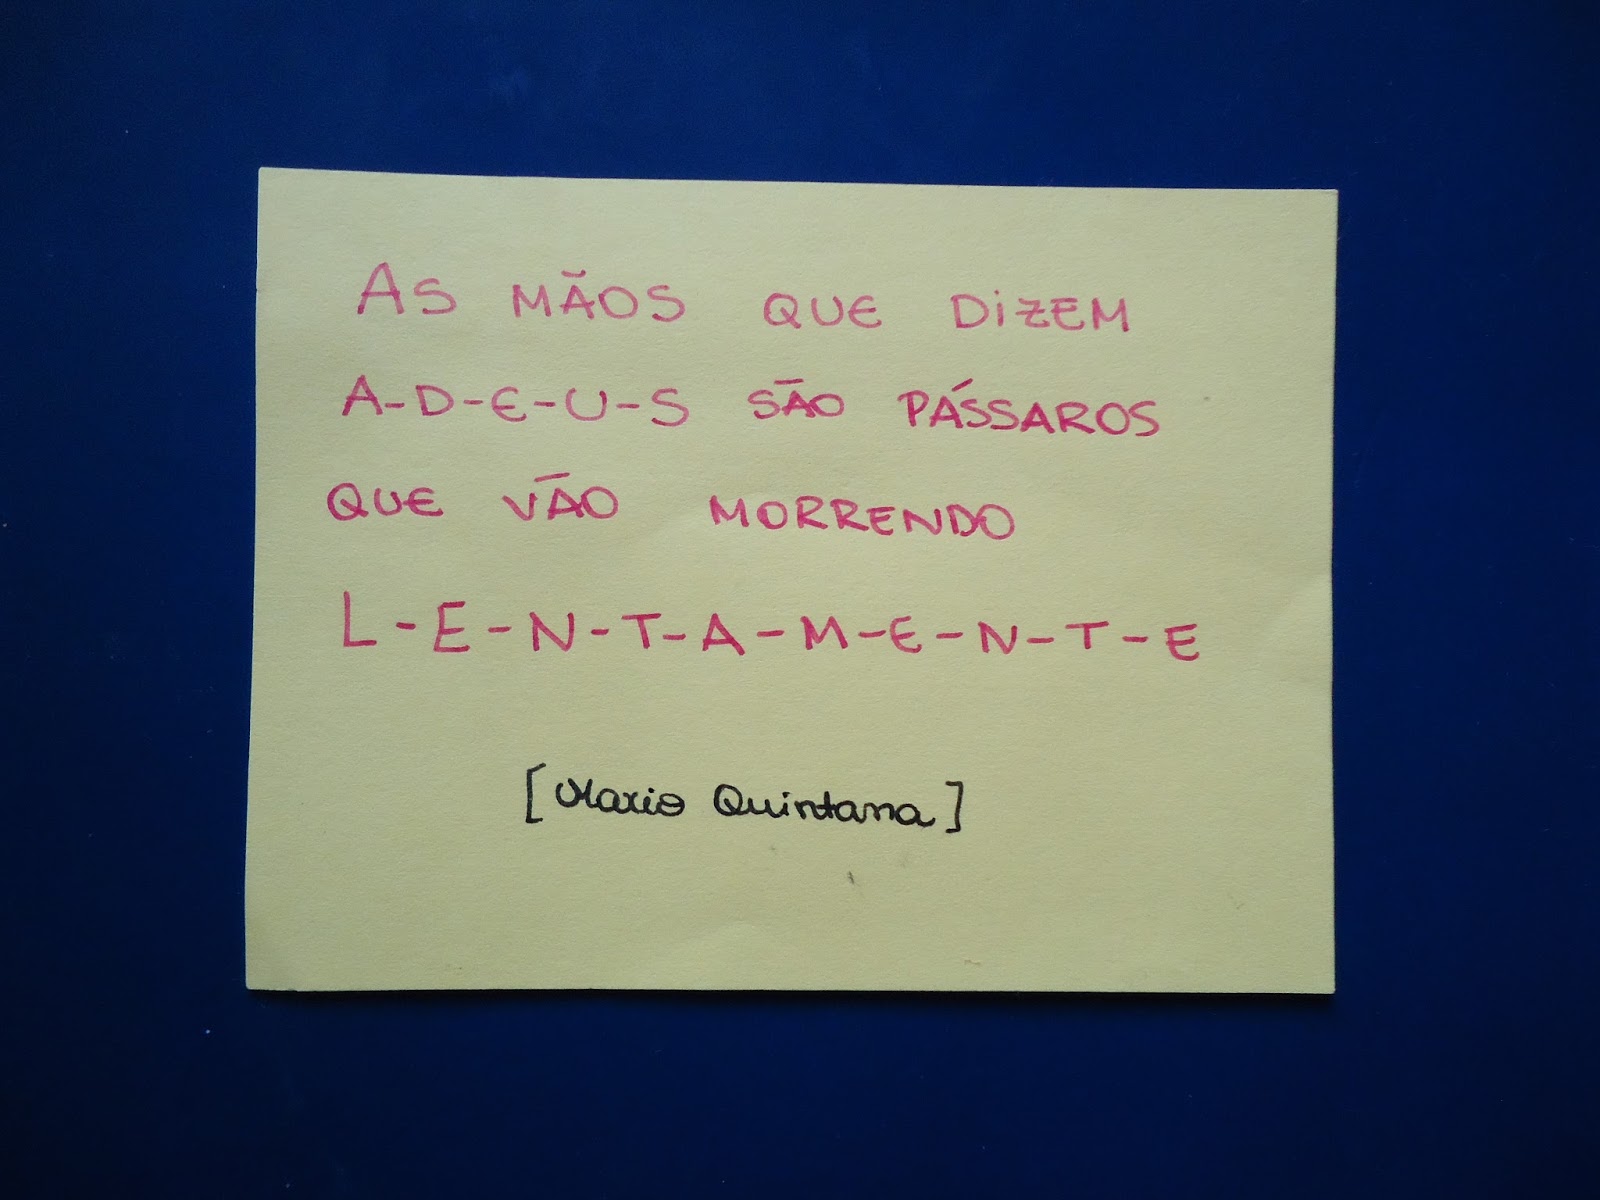 AS MÃOS QUE DIZEM
A-D-E-U-S SÃO PÁSSAROS
QUE VÃO MORRENDO
L-E-N-T-A-M-E-N-T-E
[Mario Quintana]